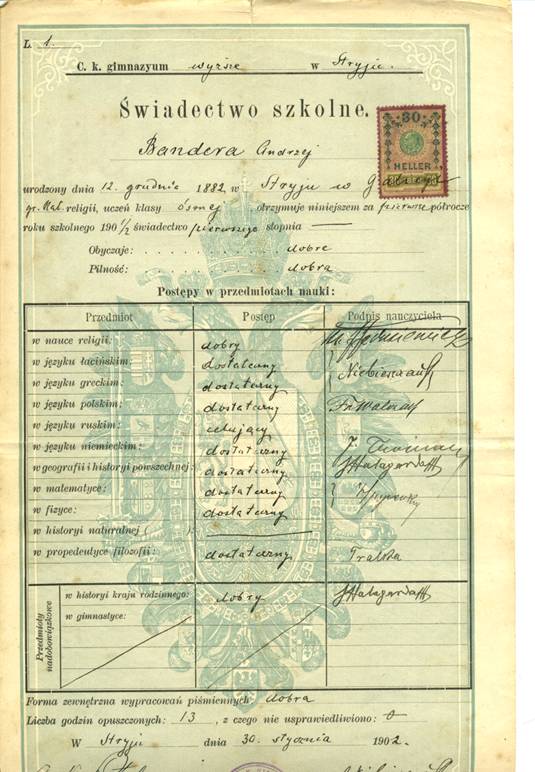 L. 1.
C. k. gimnazyum wyższe w Stryju.
Świadectwo szkolne.
30
HELLER
Bandera Andrzej
urodzony dnia 12. grudnia 1882 w Stryju w Galicyi
gr. kat. religii, uczeń klasy ósmej otrzymuje niniejszem za pierwsze półrocze
roku szkolnego 1901/2 świadectwo pierwszego stopnia —
Obyczaje: dobre
Pilność: dobra
Postępy w przedmiotach nauki:
Przedmiot Postęp Podpis nauczyciela
w nauce religii: dobry
w języku łacińskim: dostateczny
w języku greckim: dostateczny
w języku polskim: dostateczny
w języku ruskim: celujący
w języku niemieckim: dostateczny
w geografii i historyi powszechnej: dostateczny
w matematyce: dostateczny
w fizyce: dostateczny
w historyi naturalnej ( ):
w propedeutyce filozofii: dostateczny
Przedmioty nadobowiązkowe
w historyi kraju rodzinnego: dobry
w gimnastyce:
Forma zewnętrzna wypracowań piśmiennych: dobra
Liczba godzin opuszczonych: 13, z czego nie usprawiedliwiono: 0
W Stryju dnia 30. stycznia 1902.